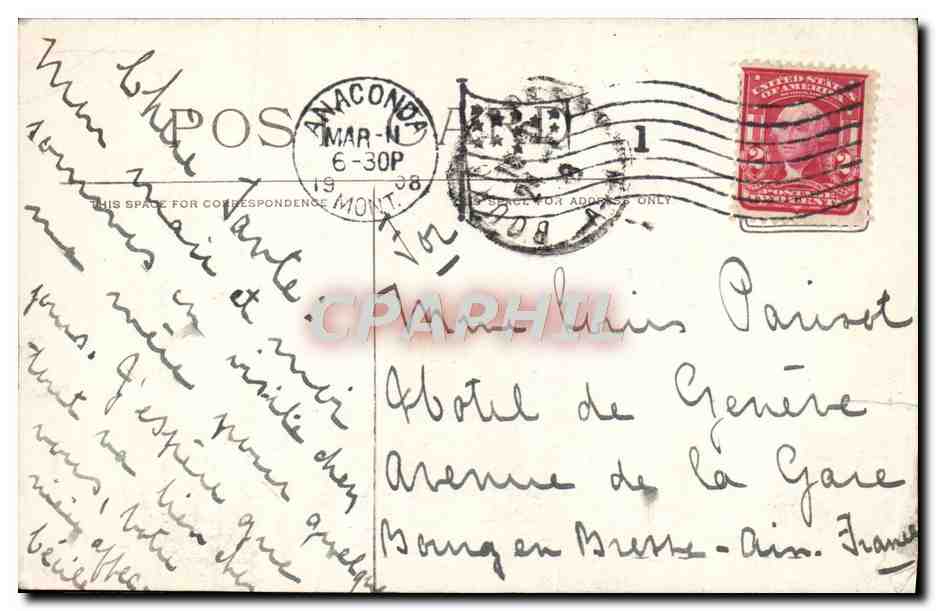 POST CARD
THIS SPACE FOR CORRESPONDENCE
SPACE FOR ADDRESS ONLY
ANACONDA
MAR-11
6-30P
1908
MONT.
1
UNITED STATES
OF AMERICA
2 2
POSTAGE
TWO CENTS
CPARPHIL
Chère Tante:
Mon mari et moi
sommes en visite chez
ma mère pour quelque
jours. J'espère que
tout va bien chez
vous, votre
nièce affec
Cécile
For
Mme Louis Parisot
Hotel de Genève
Avenue de la Gare
Bourg en Bresse - Ain. France